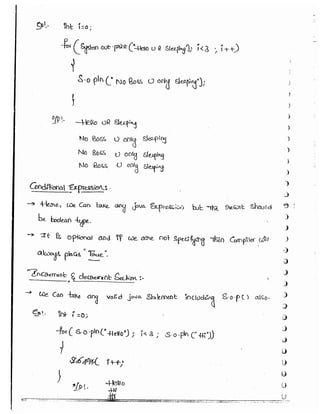 Ex:- int i=0;
for( System.out.print("Hello U R Sleeping"); i<3 ; i++)
{
S.o.pln("No Boss U only Sleeping");
}
O/P:- Hello UR Sleeping
No Boss U only Sleeping
No Boss U only Sleeping
No Boss U only Sleeping
Conditional Expression:-
→ Here, we can take any java Expression but the result should
be boolean type.
→ It is optional and if we are not specifying then Compiler will
always place "True".
Increment & decrement Section:-
→ we Can take any valid java Statement including S.o.p() also.
Ex:- int i=0;
for( S.o.pln("Hello") ; i<3 ; S.o.pln("Hi"))
{
i++;
}
O/P:- Hello
Hi
Hi